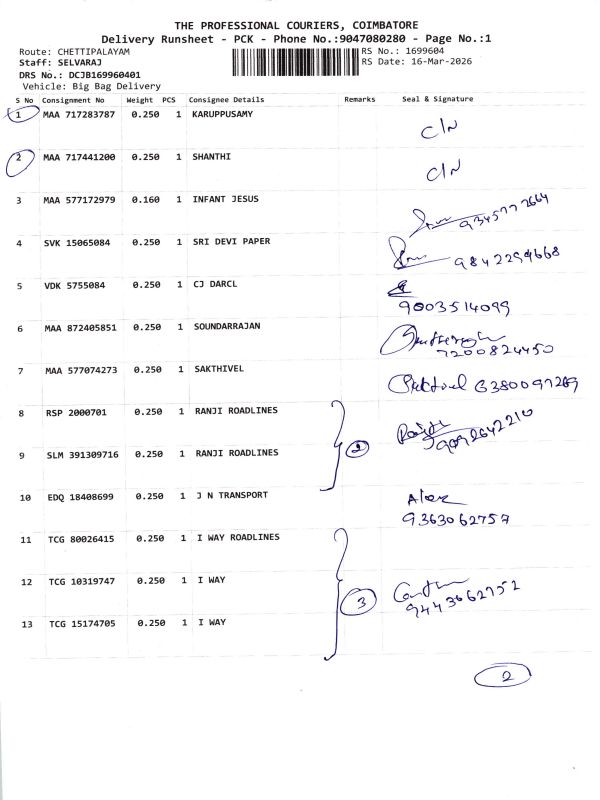 THE PROFESSIONAL COURIERS, COIMBATORE
Delivery Runsheet - PCK - Phone No.:9047080280 - Page No.:1
Route: CHETTIPALAYAM RS No.: 1699604
Staff: SELVARAJ RS Date: 16-Mar-2026
DRS No.: DCJB169960401
Vehicle: Big Bag Delivery
S No Consignment No Weight PCS Consignee Details Remarks Seal & Signature
1 MAA 717283787 0.250 1 KARUPPUSAMY C/N
2 MAA 717441200 0.250 1 SHANTHI C/N
3 MAA 577172979 0.160 1 INFANT JESUS 9345772664
4 SVK 15065084 0.250 1 SRI DEVI PAPER 9842294668
5 VDK 5755084 0.250 1 CJ DARCL
9003514099
6 MAA 872405851 0.250 1 SOUNDARRAJAN
7200824450
7 MAA 577074273 0.250 1 SAKTHIVEL Sakthivel 6380097269
8 RSP 2000701 0.250 1 RANJI ROADLINES
2 9092642210
9 SLM 391309716 0.250 1 RANJI ROADLINES
10 EDQ 18408699 0.250 1 J N TRANSPORT Alex
9363062757
11 TCG 80026415 0.250 1 I WAY ROADLINES
12 TCG 10319747 0.250 1 I WAY
3 9443662752
13 TCG 15174705 0.250 1 I WAY
2